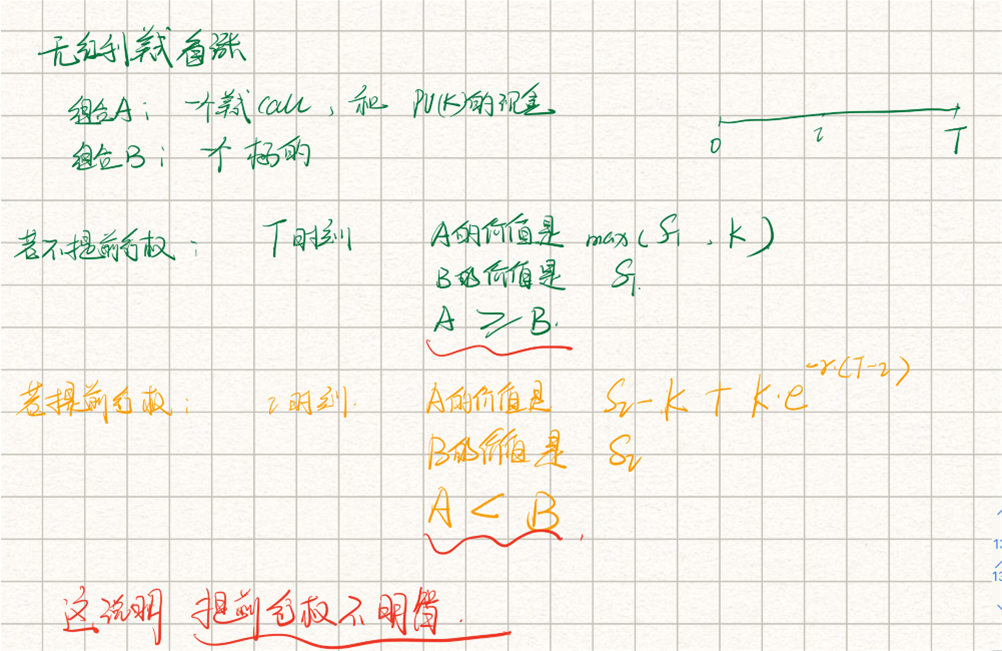 无红利美式看涨
组合A： 一个美式call，和 PV(K)的现金
组合B： 一个标的
0 τ T
若不提前行权： T时刻 A的价值是 max(S_T , K)
B的价值是 S_T
A ≥ B.
若提前行权： τ时刻. A的价值是 S_τ - K + K·e^{-r·(T-τ)}
B的价值是 S_τ
A < B.
这说明 提前行权不明智.